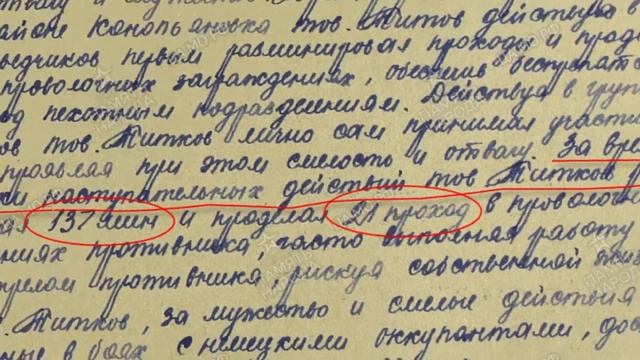 районе Конопляновка тов. Титов действуя в
ведчиков первым разминировал проходы и проде
проволочных заграждениях, обеспечив беспрепятс
од пехотным подразделениям. Действуя в груп
ов тов. Титков лично сам принимал участи
проявляя при этом смелость и отвагу. За вре
наступательных действий тов. Титков р
ал 137 мин и проделал 21 проход в проволо
ниях противника, часто выполняя работу
стрелом противника, рискуя собственной жиз
в. Титков, за мужество и смелые действия
ные в боях с немецкими оккупантами, дос